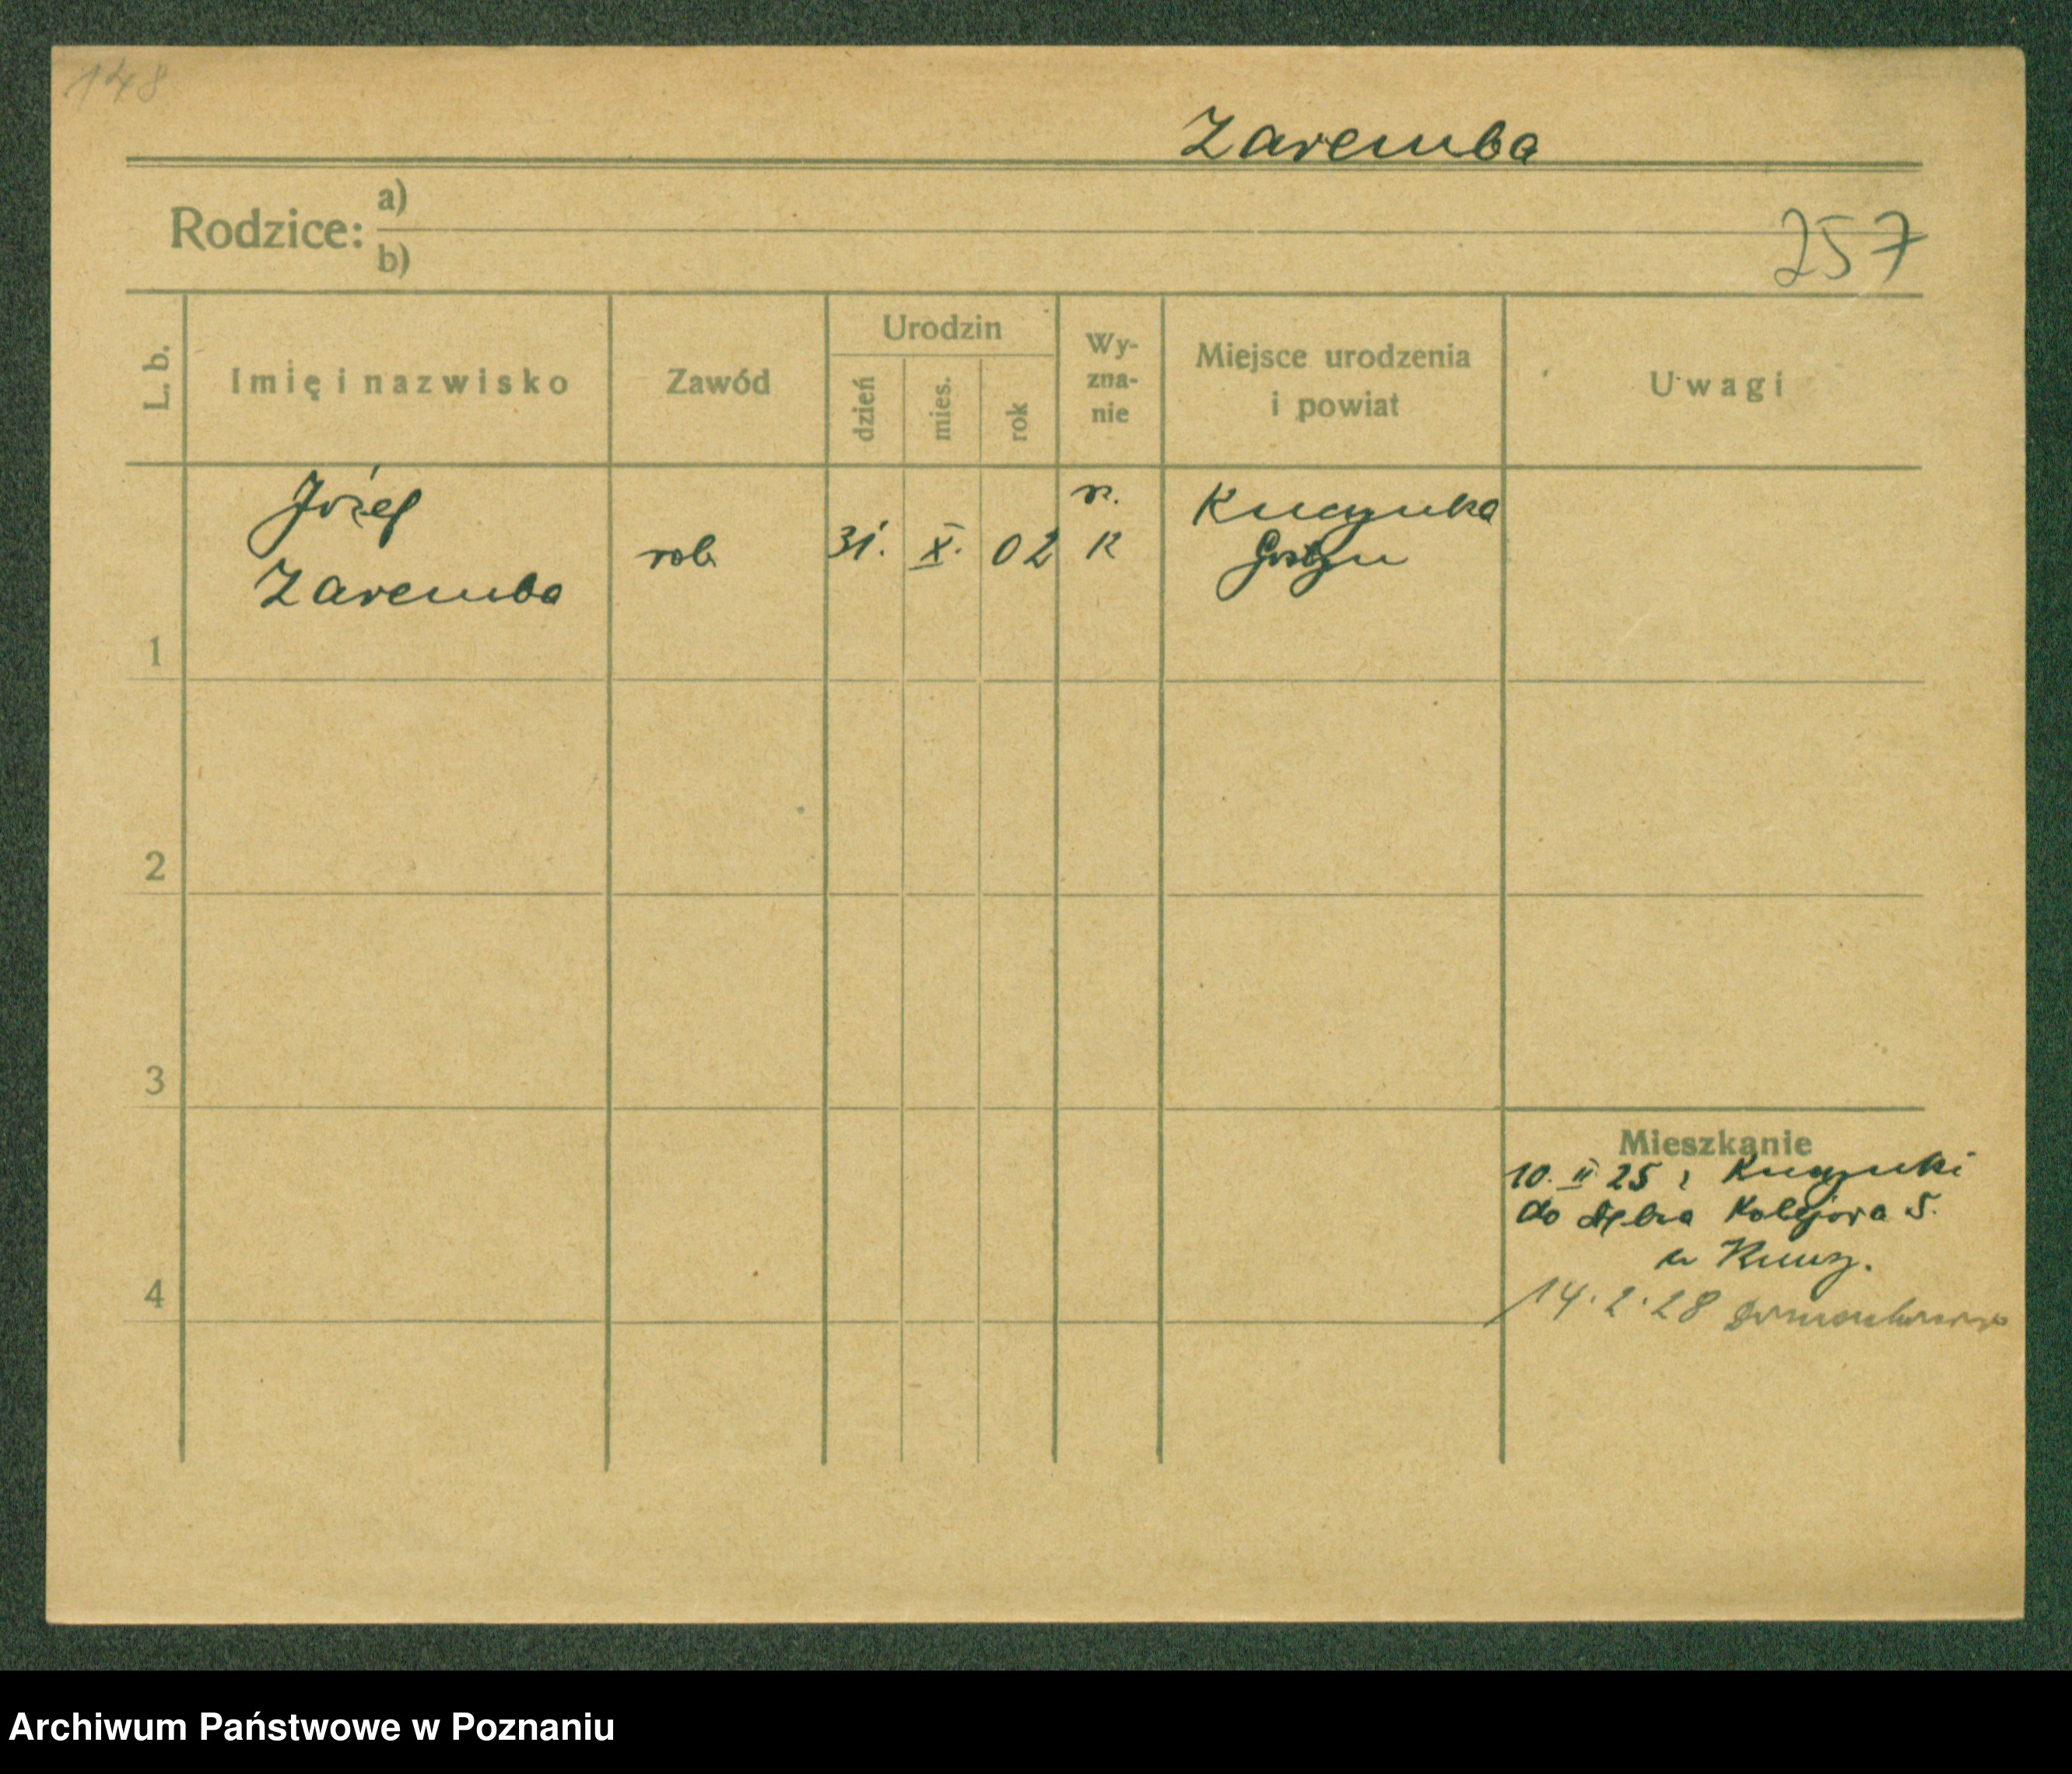 148
Zaremba
Rodzice: a)
b)
257
L. b.
Imię i nazwisko
Zawód
Urodzin
dzień
mies.
rok
Wy-
zna-
nie
Miejsce urodzenia
i powiat
Uwagi
Józef
Zaremba
rob
31.
X.
02
r.
K
Kuczynka
Gostyn
1
2
3
4
Mieszkanie
10. II 25 z Kuczynki
do Kolejowa 5.
u
14.2.28
Archiwum Państwowe w Poznaniu